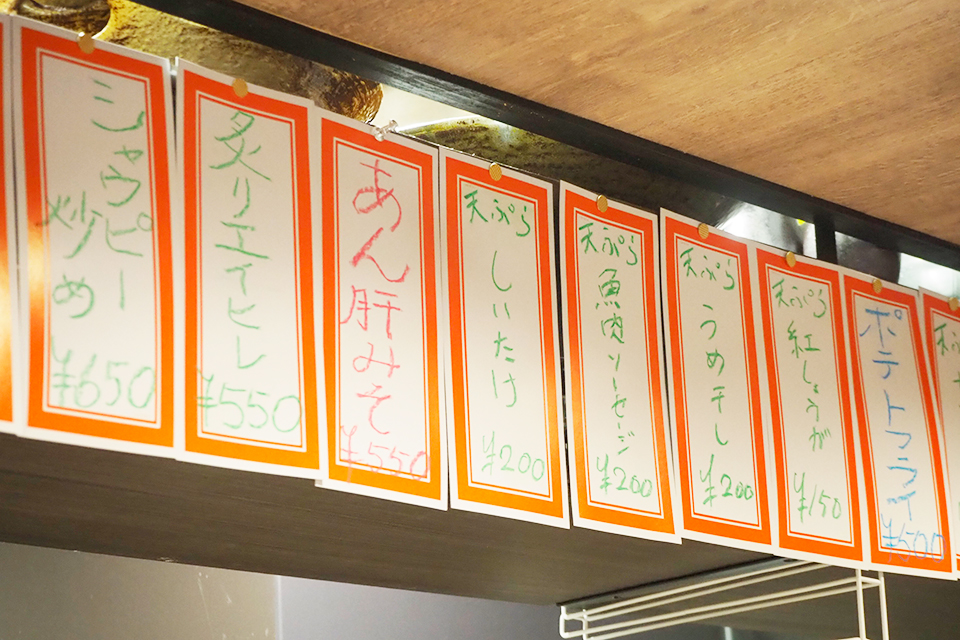 シャウピー
炒め
¥650
炙りエイヒレ
¥550
あん肝みそ
¥550
天ぷら
しいたけ
¥200
天ぷら
魚肉ソーセージ
¥200
天ぷら
うめ干し
¥200
天ぷら
紅しょうが
¥150
ポテトフライ
¥500